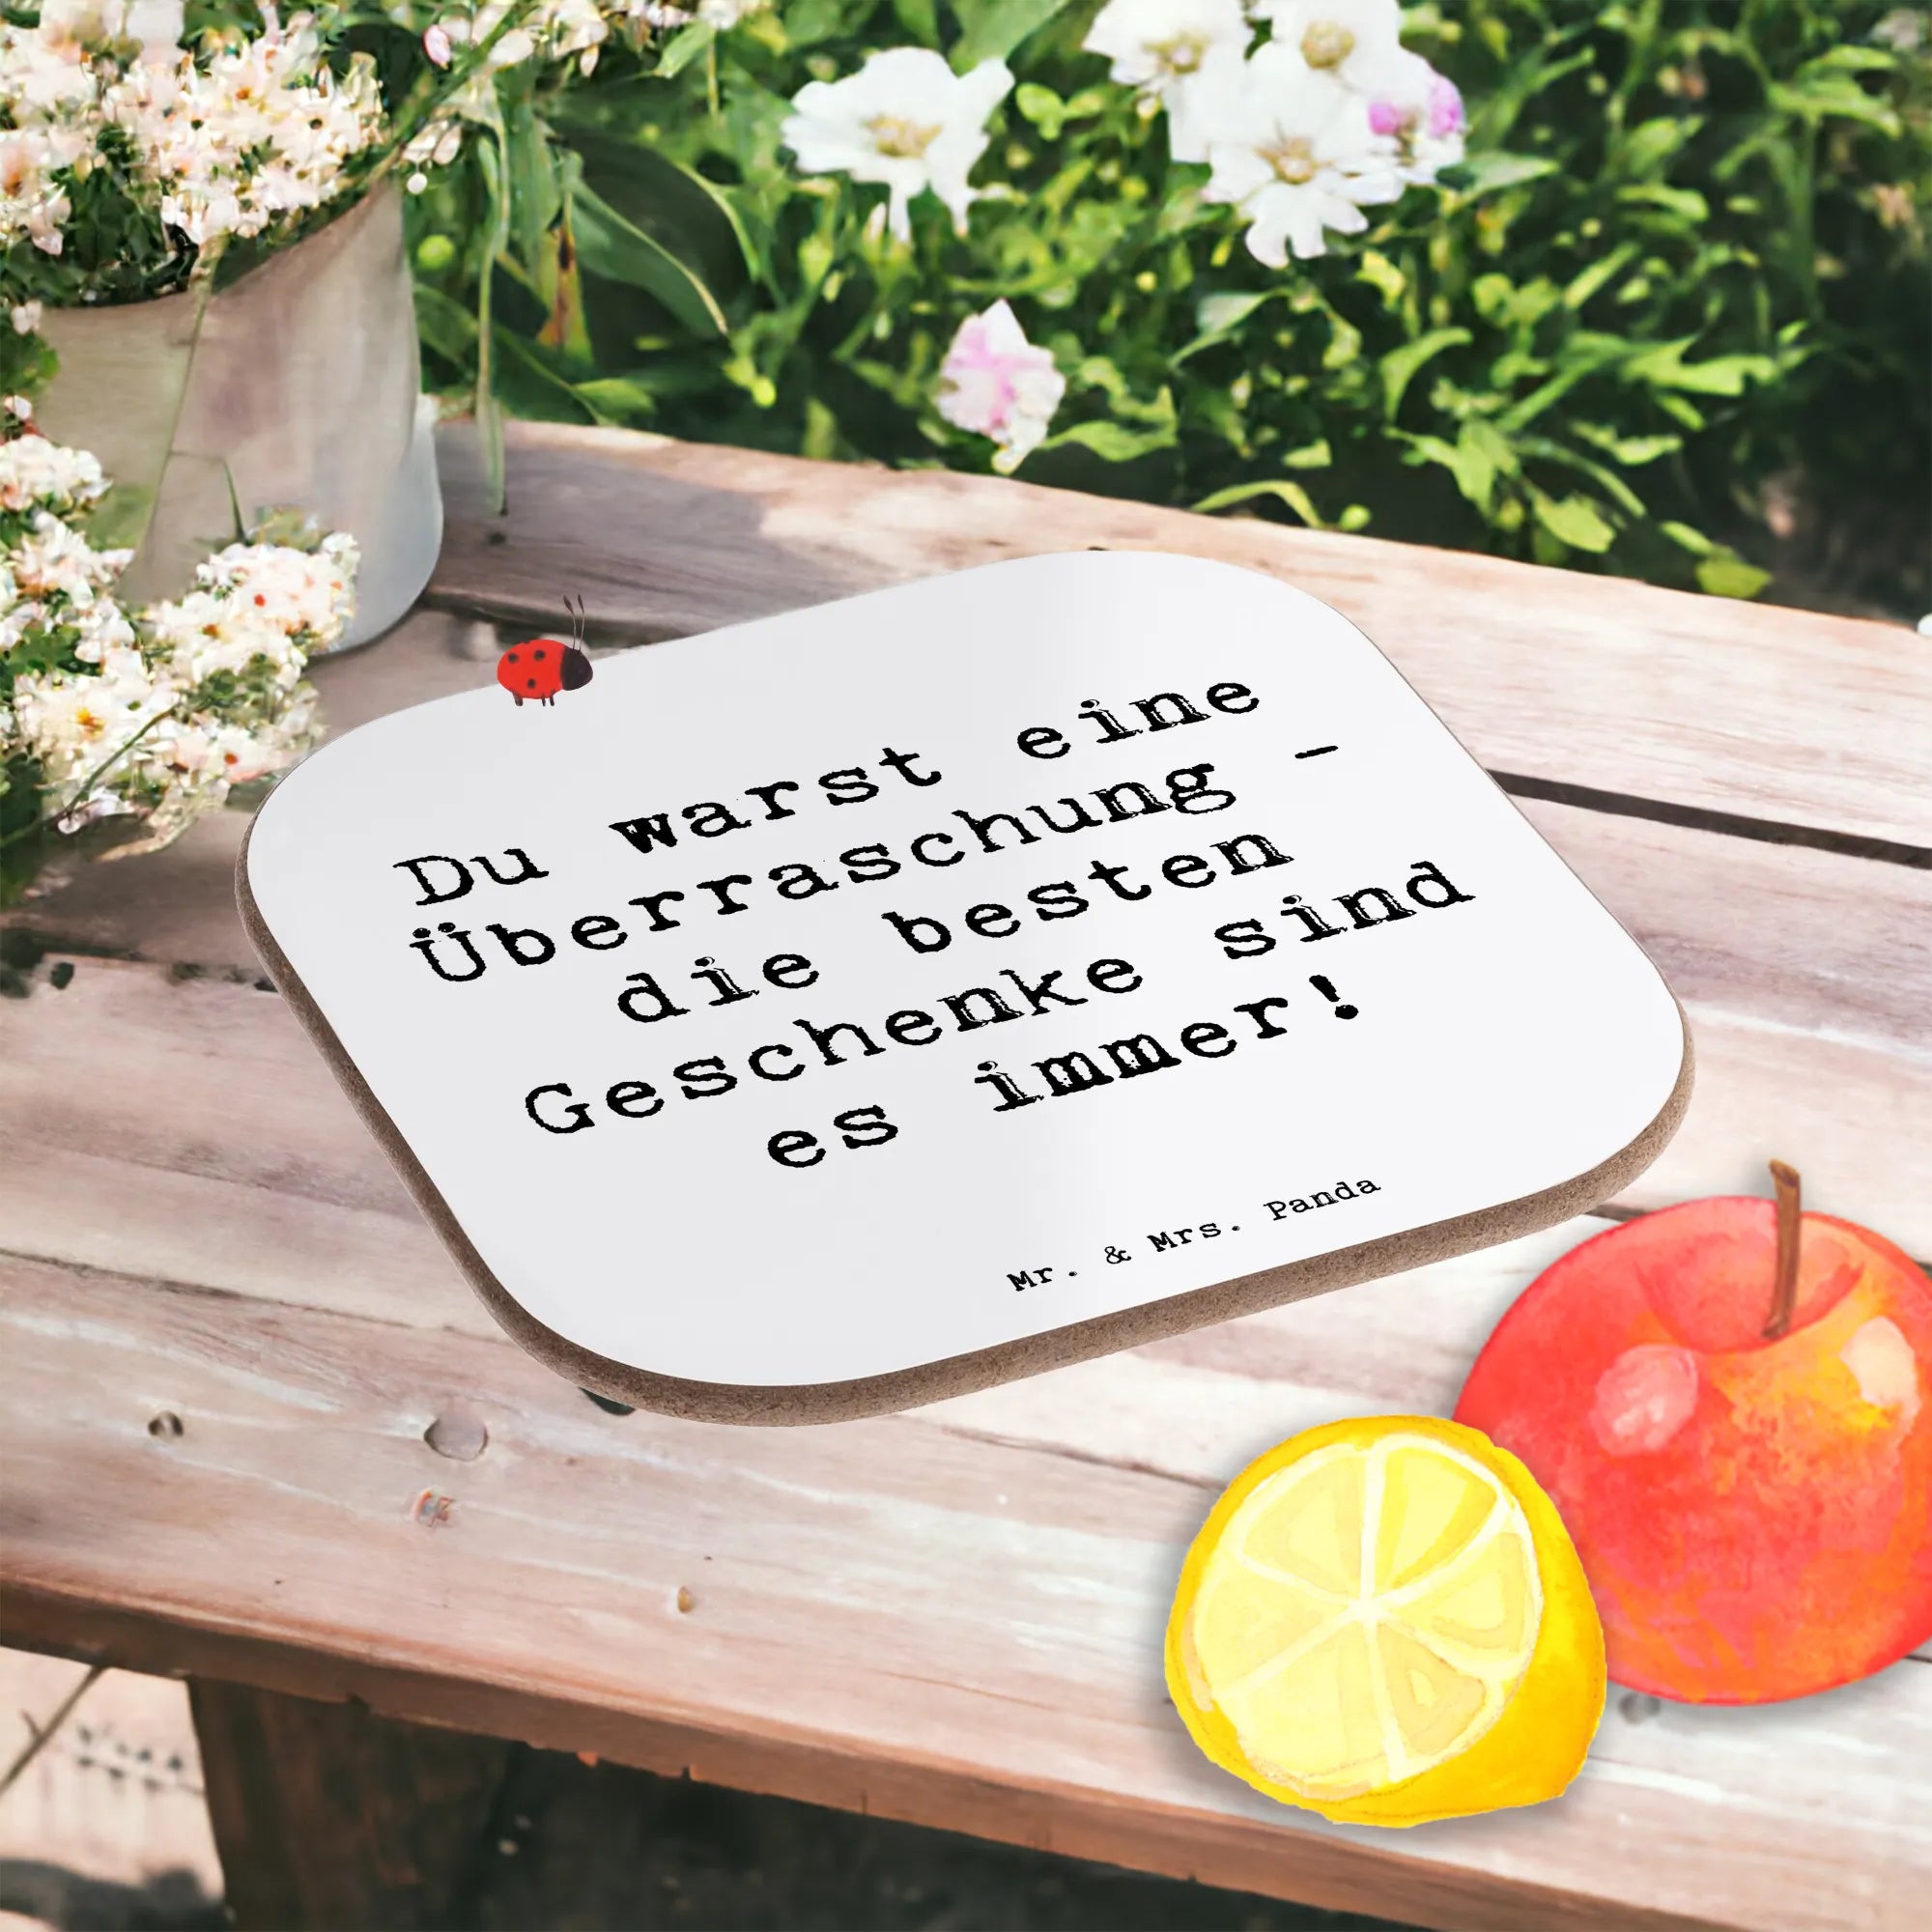 Du warst eine
Überraschung -
die besten
Geschenke sind
es immer!
Mr. & Mrs. Panda